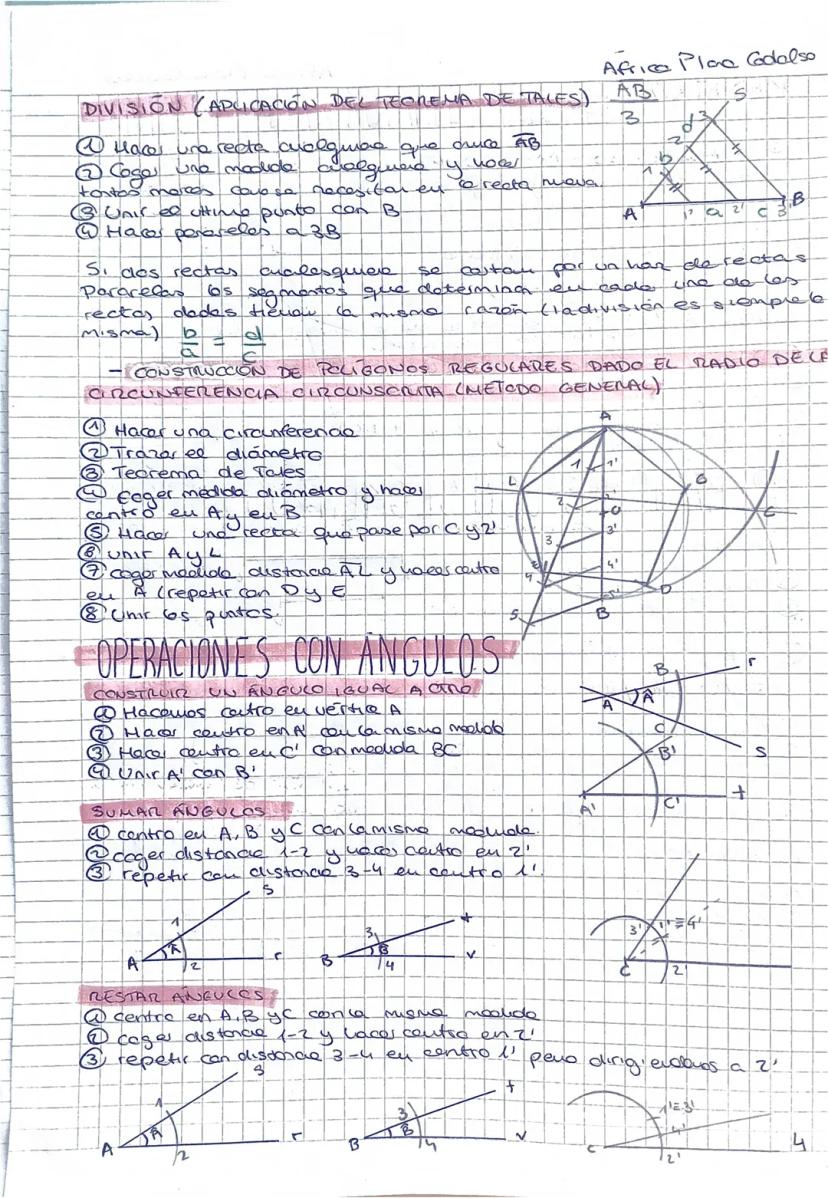 África Plaa Codalso
DIVISIÓN (APLICACIÓN DEL TEOREMA DE TALES)
AB
3
① Hacer una recta cualquiera que cruce AB
② Coger una medida cualquiera y hacer
tantas marcas como se necesitan en la recta nueva.
③ Unir el último punto con B
④ Hacer paralelas a 3B
S
3
d
2
b
1
A
1'
a
2'
c
3'
B
Si dos rectas cualesquiera se cortan por un haz de rectas
paralelas los segmentos que determina en cada una de las
rectas dadas tienen la misma razón (la división es siempre la
misma) b/a = d/c
- CONSTRUCCIÓN DE POLÍGONOS REGULARES DADO EL RADIO DE LA
CIRCUNFERENCIA CIRCUNSCRITA (MÉTODO GENERAL)
① Hacer una circunferencia
② Trazar el diámetro
③ Teorema de Tales
④ Coger medida diámetro y hacer
centro en A y en B
⑤ Hacer una recta que pase por C y 2'
⑥ Unir A y L
⑦ coger medida distancia AL y hacer centro
en A (repetir con D y E
⑧ Unir los puntos.
A
1
1'
L
G
2
O
C
3
3'
4
4'
D
5
5'
B
OPERACIONES CON ÁNGULOS
CONSTRUIR UN ÁNGULO IGUAL A OTRO
① Hacemos centro en vértice A
② Hacer centro en A' con la misma medida
③ Hacer centro en C' con medida BC
④ Unir A' con B'
B
r
A
Â
C
s
B'
A'
C'
t
SUMAR ÁNGULOS
① centro en A, B y C con la misma medida.
② coger distancia 1-2 y hacer centro en 2'
③ repetir con distancia 3-4 en centro 1'.
s
1
A
Â
2
r
t
3
B
B̂
4
v
3'
1'≡4'
C
2'
RESTAR ÁNGULOS
① centro en A, B y C con la misma medida
② coger distancia 1-2 y hacer centro en 2'
③ repetir con distancia 3-4 en centro 1' pero dirigiéndonos a 2'
s
1
A
Â
2
r
t
3
B
B̂
4
v
1'≡3'
4'
C
2'
4